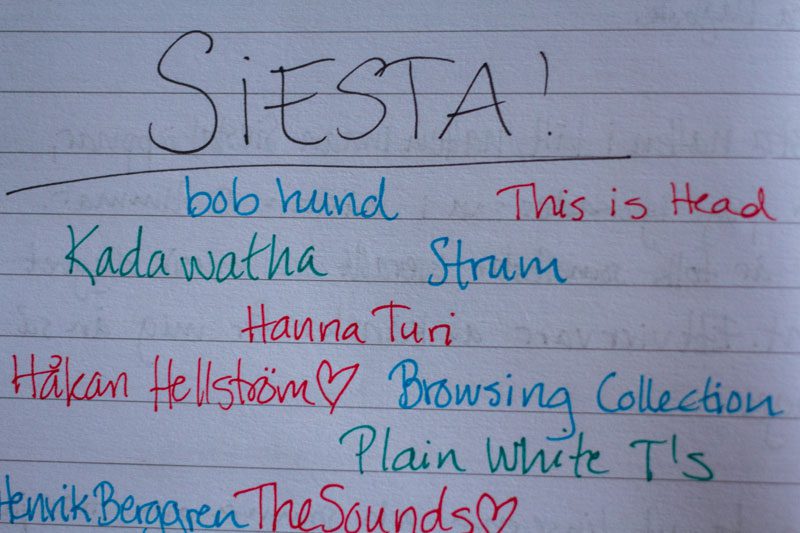 SiESTA!
bob hund This is Head
Kadawatha Strum
Hanna Turi
Håkan Hellström♡ Browsing Collection
Plain White T's
Henrik Berggren The Sounds♡